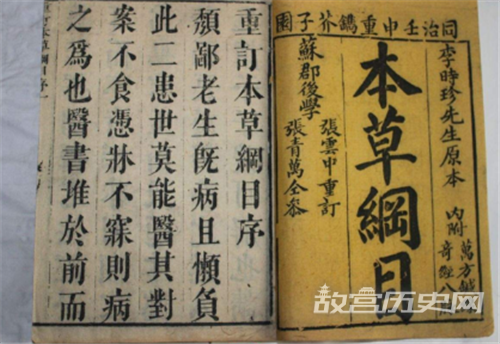 同治壬申重鐫芥子園
李時珍先生原本
内附
萬方
奇經八
本草綱目
張雲申重訂
蘇郡後學
張青萬仝參
重訂本草綱目序
頽鄙老生旣病且懶負
此二患世莫能醫其對
案不食憑牀不寐則病
之爲也醫書堆於前而
故宫历史网